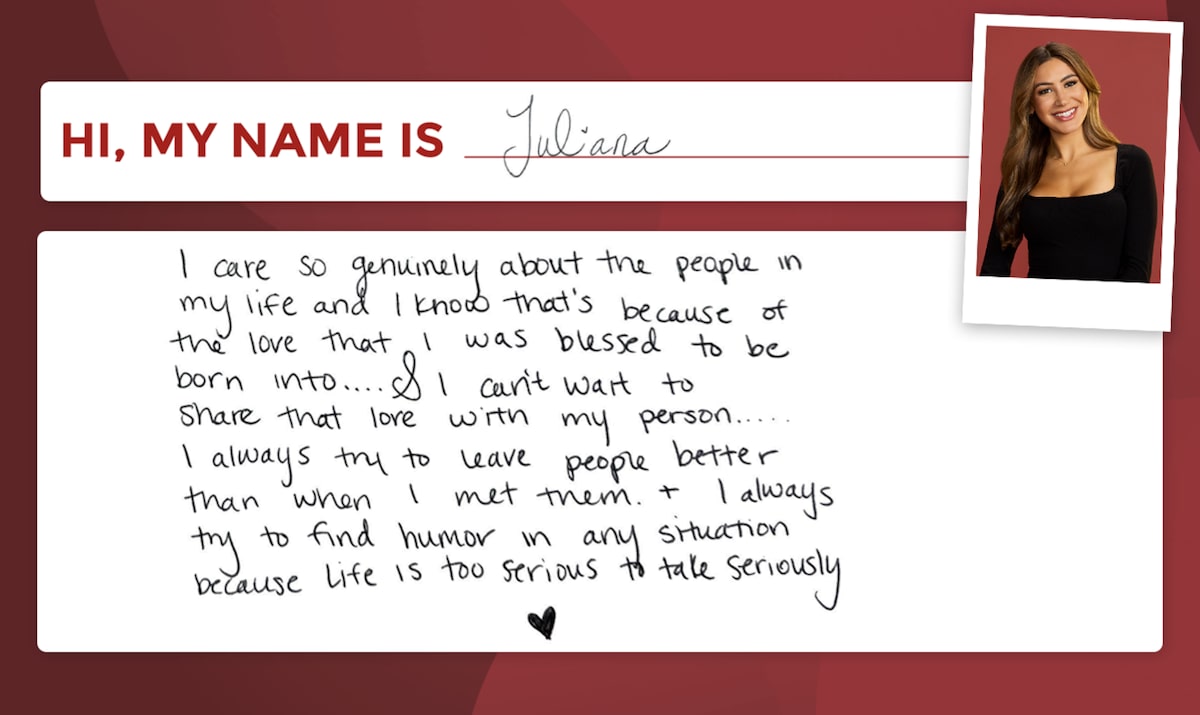 HI, MY NAME IS Juliana
I care so genuinely about the people in
my life and I know that's because of
the love that I was blessed to be
born into.... & I can't wait to
share that love with my person.....
I always try to leave people better
than when I met them. + I always
try to find humor in any situation
because life is too serious to take seriously